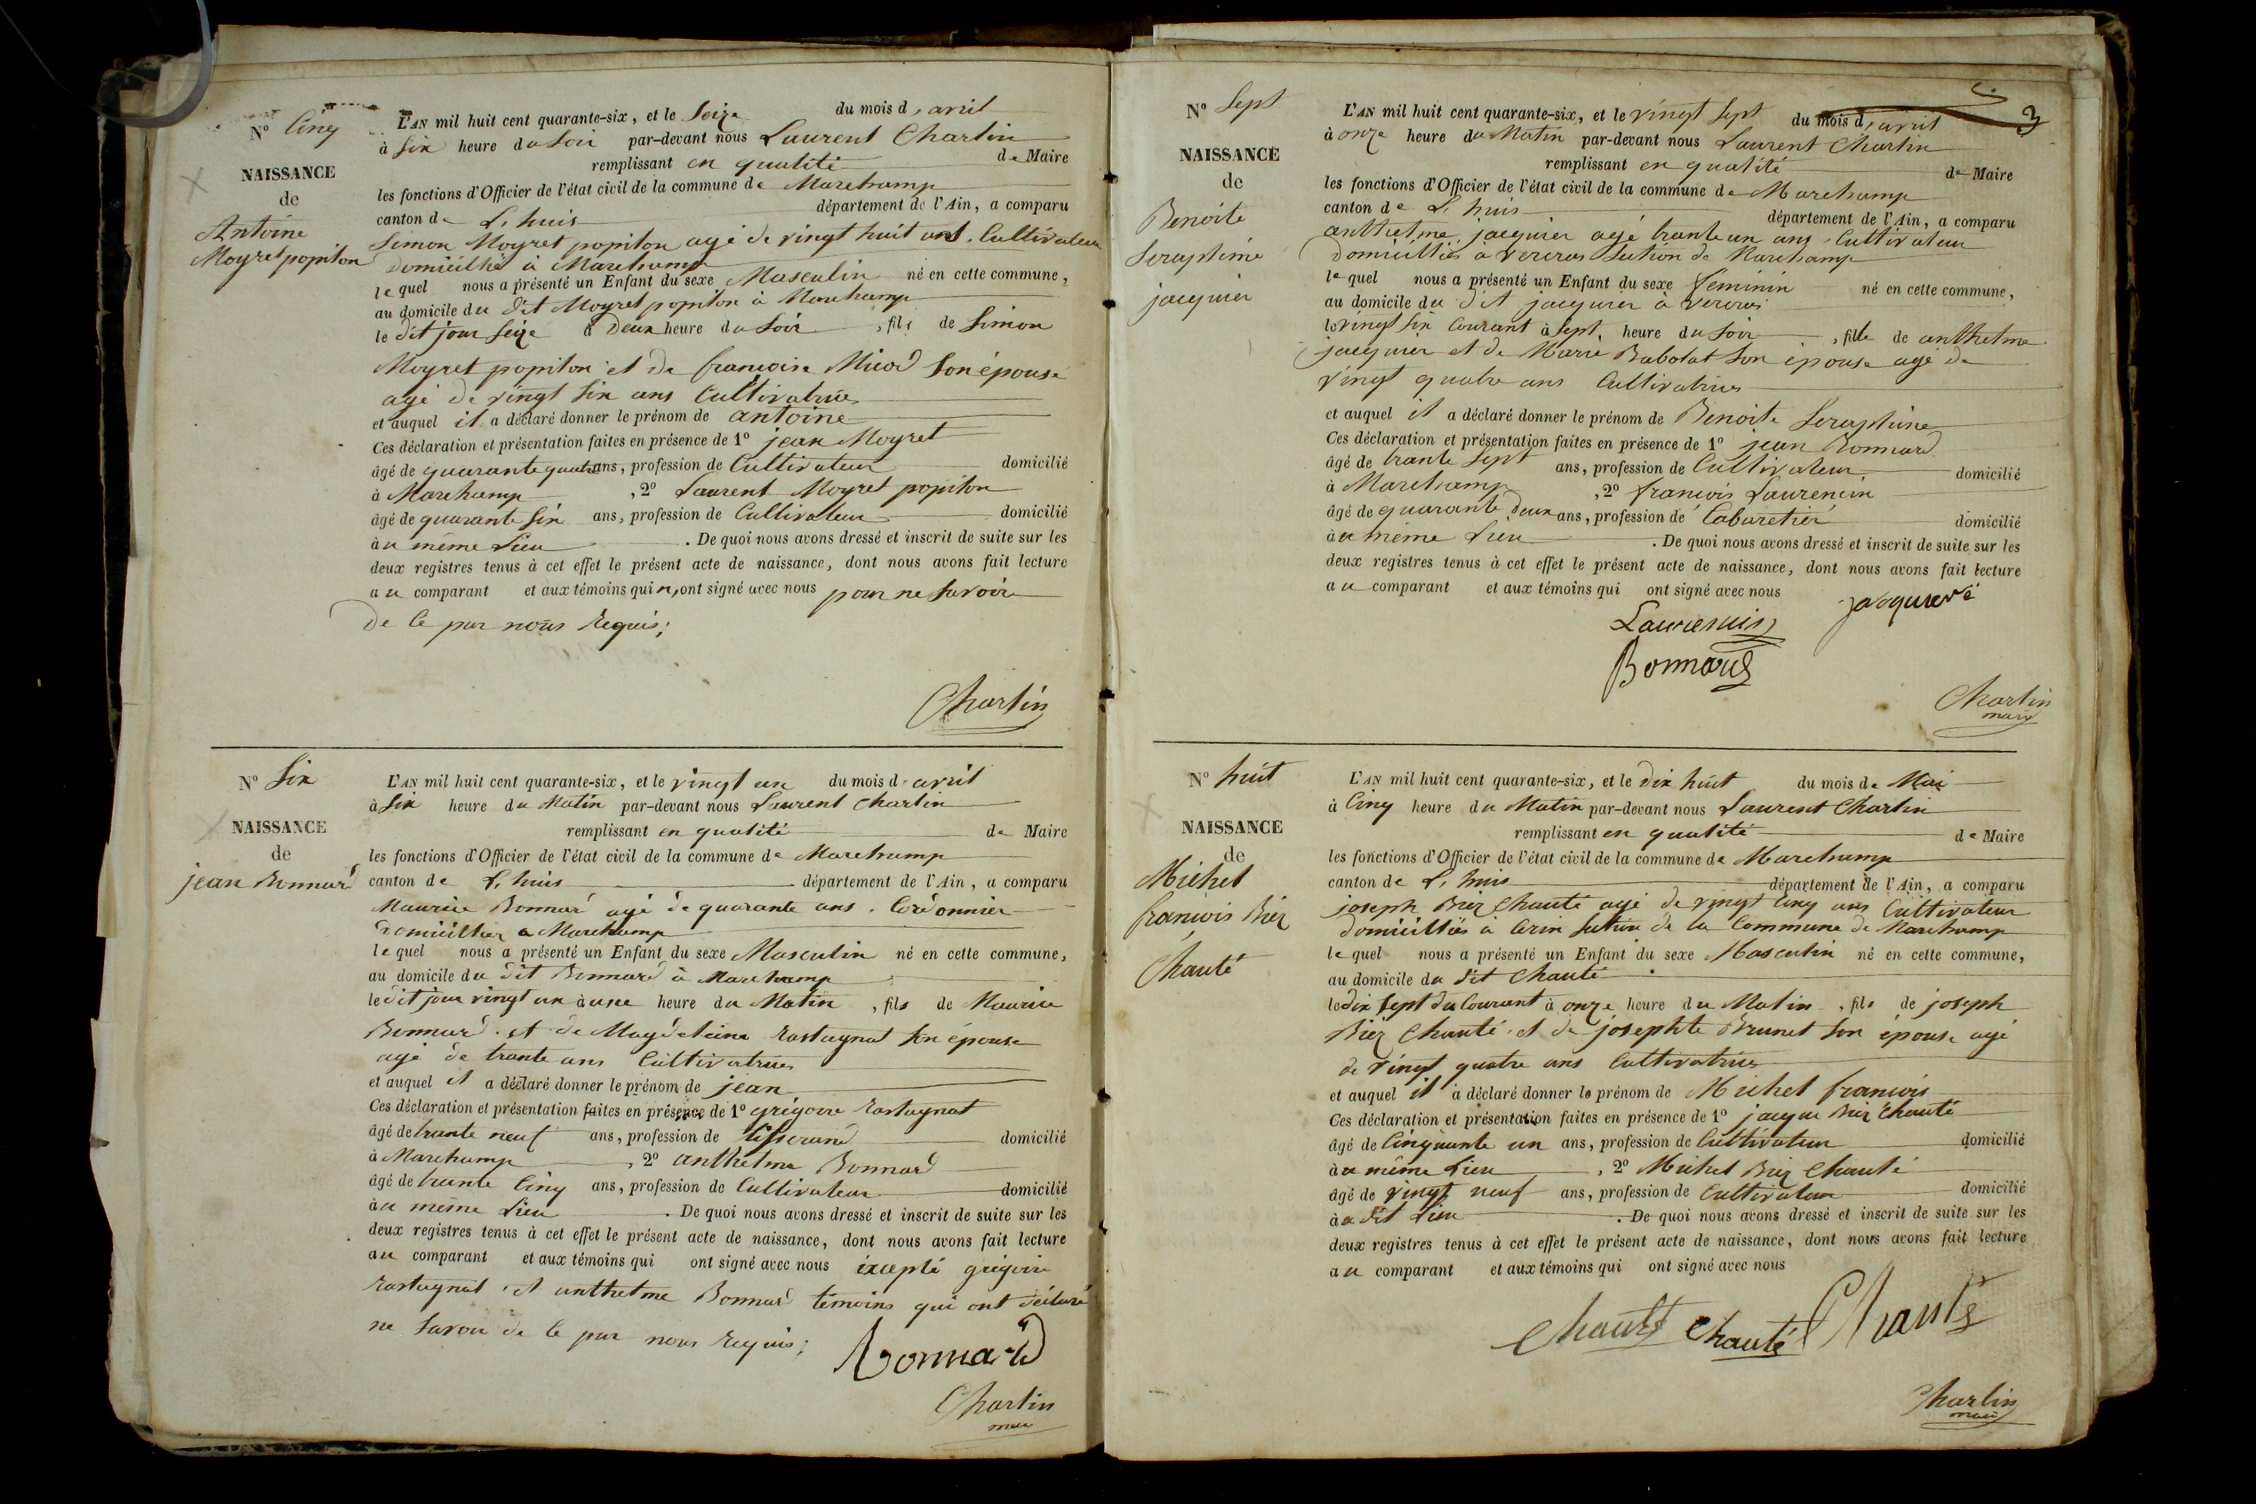 N° Cinq
NAISSANCE
de
Antoine
Moyret popiton
L'AN mil huit cent quarante-six, et le Seize du mois d'avril
à Six heure du Soir par-devant nous Laurent Charlin
remplissant en qualité de Maire
les fonctions d'Officier de l'état civil de la commune de Marchamp
canton de L'huis département de l'Ain, a comparu
Simon Moyret popiton agé de vingt huit ans. Cultivateur
domicilié à Marchamp
lequel nous a présenté un Enfant du sexe Masculin né en cette commune,
au domicile du dit Moyret popiton à Marchamp
le dit jour Seize à Deux heure du Soir, fils de Simon
Moyret popiton et de francoise Micod Son épouse
agé de vingt Six ans Cultivatrice
et auquel il a déclaré donner le prénom de antoine
Ces déclaration et présentation faites en présence de 1° jean Moyret
âgé de quarante quatre ans, profession de Cultivateur domicilié
à Marchamp, 2° Laurent Moyret popiton
âgé de quarante Six ans, profession de Cultivateur domicilié
au même Lieu. De quoi nous avons dressé et inscrit de suite sur les
deux registres tenus à cet effet le présent acte de naissance, dont nous avons fait lecture
au comparant et aux témoins qui n'ont signé avec nous pour ne Savoir
de Ce par nous Requis;
Charlin
N° Six
NAISSANCE
de
jean Bonnard
L'AN mil huit cent quarante-six, et le vingt un du mois d'avril
à Six heure du Matin par-devant nous Laurent Charlin
remplissant en qualité de Maire
les fonctions d'Officier de l'état civil de la commune de Marchamp
canton de L'huis département de l'Ain, a comparu
Maurice Bonnard agé de quarante ans. Cordonnier
domicillier a Marchamp
lequel nous a présenté un Enfant du sexe Masculin né en cette commune,
au domicile du dit Bonnard à Marchamp
le dit jour vingt un à une heure du Matin, fils de Maurice
Bonnard et de Magdeleine Rastagnat Son épouse
agé de trante ans Cultivatrice
et auquel il a déclaré donner le prénom de jean
Ces déclaration et présentation faites en présence de 1° grégoire Rastagnat
âgé de trante neuf ans, profession de tisserand domicilié
à Marchamp, 2° anthelme Bonnard
âgé de trante Cinq ans, profession de Cultivateur domicilié
au même Lieu. De quoi nous avons dressé et inscrit de suite sur les
deux registres tenus à cet effet le présent acte de naissance, dont nous avons fait lecture
au comparant et aux témoins qui ont signé avec nous excepté grégoire
Rastagnat et anthelme Bonnard témoins qui ont déclaré
ne Savoir de Ce par nous Requis;
Bonnard
Charlin
maire
3
N° Sept
NAISSANCE
de
Benoite
Seraphine
jacquier
L'AN mil huit cent quarante-six, et le vingt Sept du mois d'avril
à onze heure du Matin par-devant nous Laurent Charlin
remplissant en qualité de Maire
les fonctions d'Officier de l'état civil de la commune de Marchamp
canton de L'huis département de l'Ain, a comparu
anthelme jacquier agé trante un ans. Cultivateur
domicilliés à Section de Marchamp
lequel nous a présenté un Enfant du sexe feminin né en cette commune,
au domicile du dit jacquier a
le vingt Six Courant à Sept heure du Soir, fille de anthelme
jacquier et de Marie Babolat Son épouse agé de
vingt quatre ans Cultivatrice
et auquel il a déclaré donner le prénom de Benoite Seraphine
Ces déclaration et présentation faites en présence de 1° jean Bonnard
âgé de trante Sept ans, profession de Cultivateur domicilié
à Marchamp, 2° francois Laurencin
âgé de quarante deux ans, profession de Cabaretier domicilié
au même Lieu. De quoi nous avons dressé et inscrit de suite sur les
deux registres tenus à cet effet le présent acte de naissance, dont nous avons fait lecture
au comparant et aux témoins qui ont signé avec nous
Bonnard
Charlin
maire
N° huit
NAISSANCE
de
Michel
francois Biez
Chanté
L'AN mil huit cent quarante-six, et le dix huit du mois de Mai
à Cinq heure du Matin par-devant nous Laurent Charlin
remplissant en qualité de Maire
les fonctions d'Officier de l'état civil de la commune de Marchamp
canton de L'huis département de l'Ain, a comparu
joseph Biez Chanté agé de vingt Cinq ans Cultivateur
domicilliés à Cerin Section de la Commune de Marchamp
lequel nous a présenté un Enfant du sexe Masculin né en cette commune,
au domicile du dit Chanté
le dix Sept du Courant à onze heure du Matin, fils de joseph
Biez Chanté et de josephte Brunet Son épouse agé
de vingt quatre ans Cultivatrice
et auquel il a déclaré donner le prénom de Michel francois
Ces déclaration et présentation faites en présence de 1° jacque Biez Chanté
âgé de Cinquante un ans, profession de Cultivateur domicilié
au même Lieu, 2° Michel Biez Chanté
âgé de vingt neuf ans, profession de Cultivateur domicilié
au dit Lieu. De quoi nous avons dressé et inscrit de suite sur les
deux registres tenus à cet effet le présent acte de naissance, dont nous avons fait lecture
au comparant et aux témoins qui ont signé avec nous
Chanté Chanté Chanté
Charlin
maire